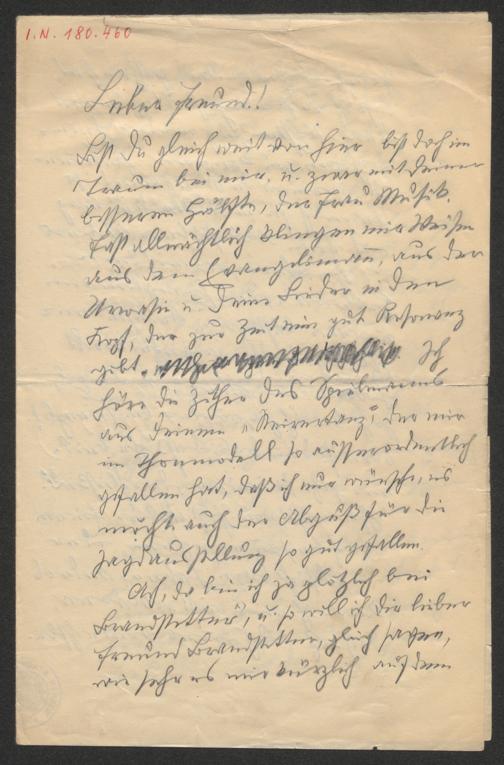 I.N. 180.460
Lieber Freund!
Bist Du gleich weit von hier bist doch im
Traum bei mir, u. zwar mit Deiner
besseren Hälfte, der Frau Musik.
Fast allnächtlich klingen mir Weisen
aus dem Evangelimann, aus der
Urvasi u. Deine Lieder in den
Kopf, der zur Zeit eine gut Resonanz
gibt. Ich
höre die Zither des Spielmanns
aus Deinem „Steirertanz", der mir
im Thonmodell so ausserordentlich
gefallen hat, daß ich nur wünsche, es
möchte auch der Abguß für die
Jagdausstellung so gut gefallen.
Ach, da bin ich ja plötzlich bei
Brandstetter, u. so will ich Dir lieber
Freund Brandstetter, gleich sagen,
wie sehr es mir kürzlich auf dem